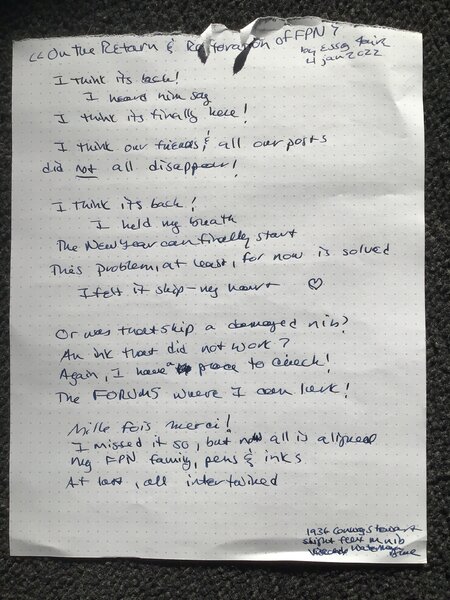 "On the Return & Restoration of FPN"
by Essay Fair
4 Jan 2022
I think its back!
I heard him say
I think its finally here!
I think our friends & all our posts
did not all disappear!
I think its back!
I held my breath
The New Year can finally start
This problem, at least, for now is solved
I felt it skip - my heart ♡
Or was that skip a damaged nib?
An ink that did not work?
Again, I have a place to check!
The FORUMS where I can lurk!
Mille fois merci!
I missed it so, but now all is aligned
My FPN family, pens & inks
At last, all intertwined
1936 Conway Stewart
slight flex m nib
Waterman